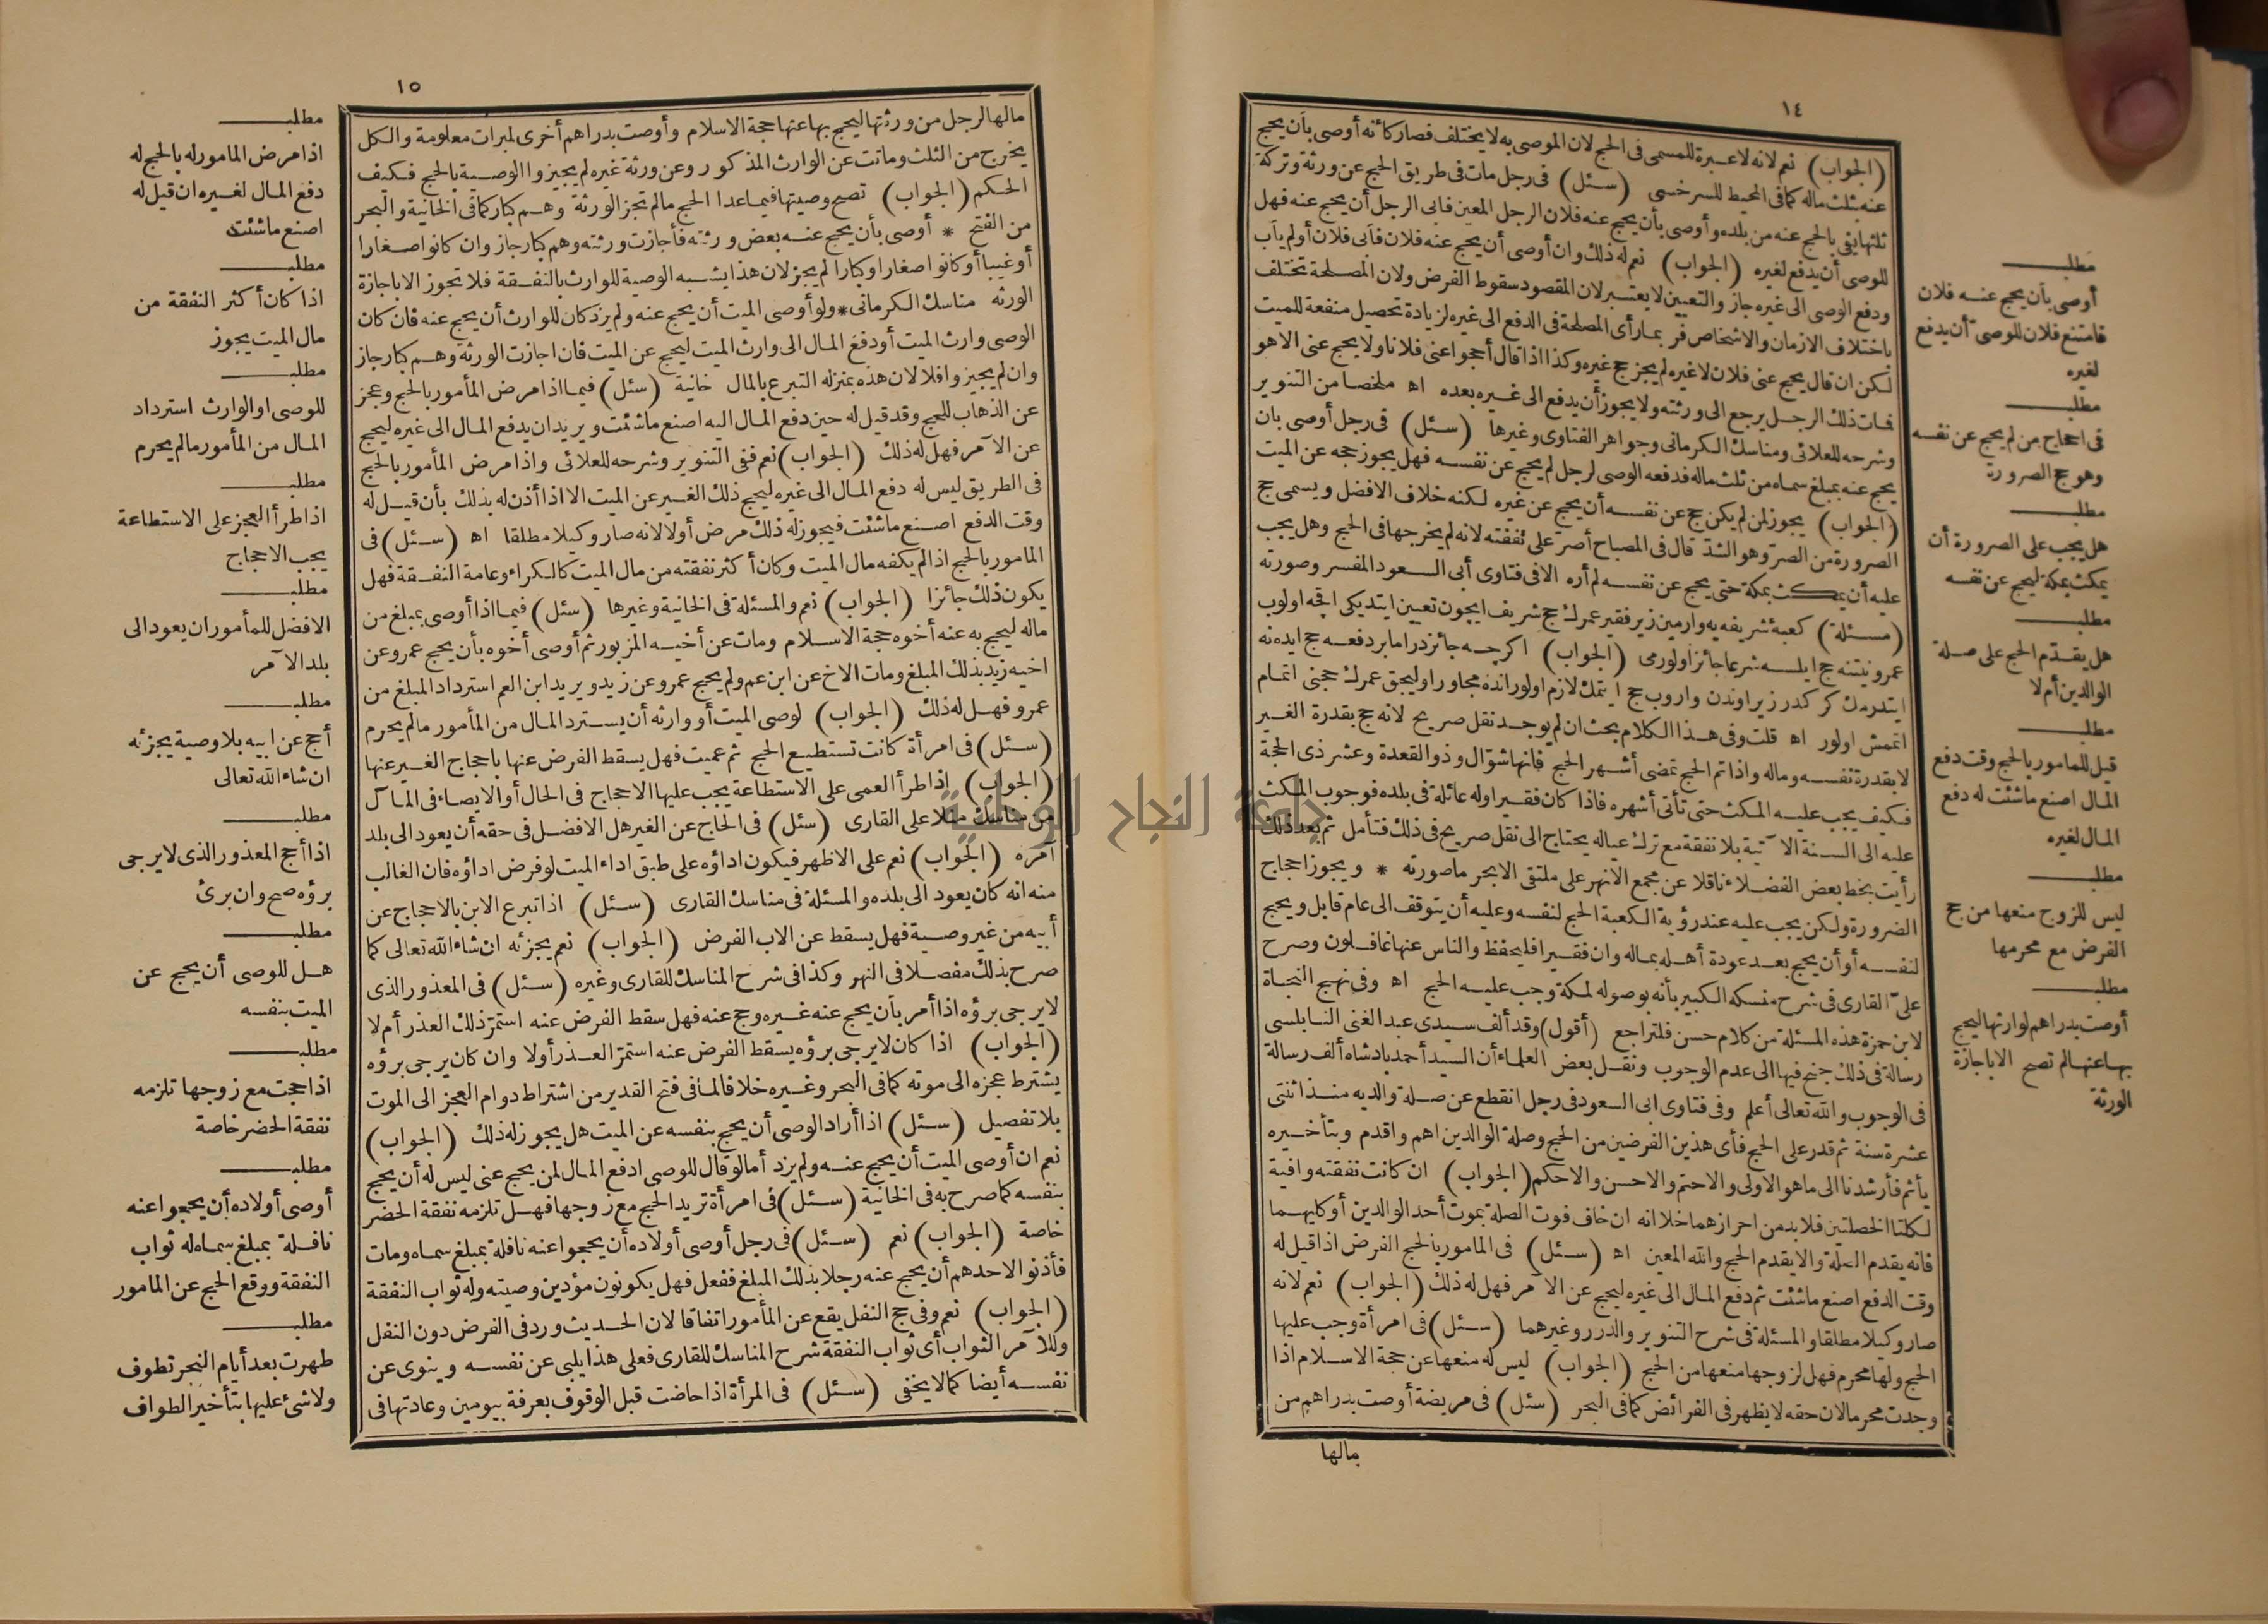 ١٤
(الجواب) نعم لانه لا عبرة للمسمى فى الحج لان الموصى به لا يختلف فصار كأنه أوصى بأن يحج
عنه بثلث ماله كما فى المحيط للسرخسى (سئل) فى رجل مات فى طريق الحج عن ورثة وتركة
ثلثها يفى بالحج عنه من بلده وأوصى بأن يحج عنه فلان الرجل المعين فابى الرجل أن يحج عنه فهل
للوصى أن يدفع لغيره (الجواب) نعم له ذلك وان أوصى أن يحج عنه فلان فأبى فلان أو لم يأب
ودفع الوصى الى غيره جاز والتعيين لا يعتبر لان المقصود سقوط الفرض ولان المصلحة تختلف
باختلاف الازمان والاشخاص فربما رأى المصلحة فى الدفع الى غيره لزيادة تحصيل منفعة للميت
لكن ان قال يحج عنى فلان لا غيره لم يجز حج غيره وكذا اذا قال أحجوا عنى فلانا ولا يحج عنى الا هو
فمات ذلك الرجل يرجع الى ورثته ولا يجوز أن يدفع الى غيره بعده اه ملخصا من التنوير
وشرحه للعلائى ومناسك الكرمانى وجواهر الفتاوى وغيرها (سئل) فى رجل أوصى بان
يحج عنه بمبلغ سماه من ثلث ماله فدفعه الوصى لرجل لم يحج عن نفسه فهل يجوز حجه عن الميت
(الجواب) يجوز لمن لم يكن حج عن نفسه أن يحج عن غيره لكنه خلاف الافضل ويسمى حج
الصرورة من الصر وهو الشد قال فى المصباح أصر على نفقته لانه لم يخرجها فى الحج وهل يجب
عليه أن يمكث بمكة حتى يحج عن نفسه لم أره الا فى فتاوى أبى السعود المفسر وصورته
(مسئلة) كعبۀ شريفه يه وارمين زير فقير عمرك حج شريف ايچون تعيين ايتديكى اقچه اولوب
عمرو نيتنه حج ايلسه شرعا جائز اولورمى (الجواب) اكرچه جائزدر اما بر دفعه حج ايده نه
ايتدرمك كركدر زيرا وندن واروب حج ايتمك لازم اولور انده مجاور اوليجق عمرك حجنى اتمام
اتمش اولور اه قلت وفى هذا الكلام بحث ان لم يوجد نقل صريح لانه حج بقدرة الغير
لا بقدرة نفسه وماله واذا تم الحج تمضى أشهر الحج فانها شوّال وذو القعدة وعشر ذى الحجة
فكيف يجب عليه المكث حتى تأتى أشهره فاذا كان فقيرا وله عائلة فى بلده فوجوب المكث
عليه الى السنة الآتية بلا نفقة مع ترك عياله يحتاج الى نقل صريح فى ذلك فتأمل ثم بعد ذلك
رأيت بخط بعض الفضلاء ناقلا عن مجمع الانهر على ملتقى الابحر ما صورته * ويجوز احجاج
الضرورة ولكن يجب عليه عند رؤية الكعبة الحج لنفسه وعليه أن يتوقف الى عام قابل ويحج
لنفسه أو أن يحج بعد عودة أهله بماله وان فقيرا فليحفظ والناس عنها غافلون وصرح
علىّ القارى فى شرح منسكه الكبير بأنه بوصوله لمكة وجب عليه الحج اه وفى نهج النجاة
لابن حمزة هذه المسئلة من كلام حسن فلتراجع (أقول) وقد ألف سيدى عبد الغنى النابلسى
رسالة فى ذلك جنح فيها الى عدم الوجوب ونقل بعض العلماء أن السيد أحمد بادشاه ألف رسالة
فى الوجوب والله تعالى أعلم وفى فتاوى ابى السعود فى رجل انقطع عن صلة والديه منذ اثنتى
عشرة سنة ثم قدر على الحج فأى هذين الفرضين من الحج وصلة الوالدين اهم واقدم وبتأخيره
يأثم فأرشدنا الى ما هو الاولى والاحتم والاحسن والاحكم (الجواب) ان كانت نفقته وافية
لكلتا الخصلتين فلا بد من احرازهما خلا انه ان خاف فوت الصلة بموت أحد الوالدين أو كليهما
فانه يقدم الصلة والا يقدم الحج والله المعين اه (سئل) فى المأمور بالحج الفرض اذا قيل له
وقت الدفع اصنع ما شئت ثم دفع المال الى غيره ليحج عن الآمر فهل له ذلك (الجواب) نعم لانه
صار وكيلا مطلقا والمسئلة فى شرح التنوير والدرر وغيرهما (سئل) فى امرأة وجب عليها
الحج ولها محرم فهل لزوجها منعها من الحج (الجواب) ليس له منعها عن حجة الاسلام اذا
وجدت محرما لان حقه لا يظهر فى الفرائض كما فى البحر (سئل) فى مريضة أوصت بدراهم من
مالها
مطلب
أوصى بأن يحج عنه فلان
فامتنع فلان للوصى أن يدفع
لغيره
مطلب
فى احجاج من لم يحج عن نفسه
وهو حج الصرورة
مطلب
هل يجب على الصرورة أن
يمكث بمكة ليحج عن نفسه
مطلب
هل يقدّم الحج على صلة
الوالدين أم لا
مطلب
قيل للمامور بالحج وقت دفع
المال اصنع ما شئت له دفع
المال لغيره
مطلب
ليس للزوج منعها من حج
الفرض مع محرمها
مطلب
أوصت بدراهم لوارثها ليحج
بها عنها لم تصح الا باجازة
الورثة
١٥
مالها لرجل من ورثتها ليحج بها عنها حجة الاسلام وأوصت بدراهم أخرى لمبرات معلومة والكل
يخرج من الثلث وماتت عن الوارث المذكور وعن ورثة غيره لم يجيزوا الوصية بالحج فكيف
الحكم (الجواب) تصح وصيتها فيما عدا الحج ما لم تجز الورثة وهم كبار كما فى الخانية والبحر
من الفتح * أوصى بأن يحج عنه بعض ورثته فأجازت ورثته وهم كبار جاز وان كانوا صغارا
أو غيبا أو كانوا صغارا وكبارا لم يجز لان هذا يشبه الوصية للوارث بالنفقة فلا تجوز الا باجازة
الورثه مناسك الكرمانى * ولو أوصى الميت أن يحج عنه ولم يزد كان للوارث أن يحج عنه فان كان
الوصى وارث الميت أو دفع المال الى وارث الميت ليحج عن الميت فان اجازت الورثة وهم كبار جاز
وان لم يجيزوا فلا لان هذه بمنزله التبرع بالمال خانية (سئل) فيما اذا مرض المأمور بالحج وعجز
عن الذهاب للحج وقد قيل له حين دفع المال اليه اصنع ما شئت ويريد ان يدفع المال الى غيره ليحج
عن الآمر فهل له ذلك (الجواب) نعم ففى التنوير وشرحه للعلائى واذا مرض المأمور بالحج
فى الطريق ليس له دفع المال الى غيره ليحج ذلك الغير عن الميت الا اذا أذن له بذلك بأن قيل له
وقت الدفع اصنع ما شئت فيجوز له ذلك مرض أولا لانه صار وكيلا مطلقا اه (سئل) فى
المامور بالحج اذا لم يكفه مال الميت وكان أكثر نفقته من مال الميت كالكراء وعامة النفقة فهل
يكون ذلك جائزا (الجواب) نعم والمسئلة فى الخانية وغيرها (سئل) فيما اذا أوصى بمبلغ من
ماله ليحج به عنه أخوه حجة الاسلام ومات عن أخيه المزبور ثم أوصى أخوه بأن يحج عمرو عن
اخيه زيد بذلك المبلغ ومات الاخ عن ابن عم ولم يحج عمرو عن زيد ويريد ابن العم استرداد المبلغ من
عمرو فهل له ذلك (الجواب) لوصى الميت أو وارثه أن يسترد المال من المأمور ما لم يحرم
(سئل) فى امرأة كانت تستطيع الحج ثم عميت فهل يسقط الفرض عنها باحجاج الغير عنها
(الجواب) اذا طرأ العمى على الاستطاعة يجب عليها الاحجاج فى الحال أو الايصاء فى المآل
من مناسك منلا على القارى (سئل) فى الحاج عن الغير هل الافضل فى حقه أن يعود الى بلد
آمره (الجواب) نعم على الاظهر فيكون اداؤه على طبق اداء الميت لو فرض اداؤه فان الغالب
منه انه كان يعود الى بلده والمسئلة فى مناسك القارى (سئل) اذا تبرع الابن بالاحجاج عن
أبيه من غير وصية فهل يسقط عن الاب الفرض (الجواب) نعم يجزئه ان شاء الله تعالى كما
صرح بذلك مفصلا فى النهر وكذا فى شرح المناسك للقارى وغيره (سئل) فى المعذور الذى
لا يرجى برؤه اذا أمر بأن يحج عنه غيره وحج عنه فهل سقط الفرض عنه استمرّ ذلك العذر أم لا
(الجواب) اذا كان لا يرجى برؤه يسقط الفرض عنه استمرّ العذر أولا وان كان يرجى برؤه
يشترط عجزه الى موته كما فى البحر وغيره خلافا لما فى فتح القدير من اشتراط دوام العجز الى الموت
بلا تفصيل (سئل) اذا أراد الوصى أن يحج بنفسه عن الميت هل يجوز له ذلك (الجواب)
نعم ان أوصى الميت أن يحج عنه ولم يزد أما لو قال للوصى ادفع المال لمن يحج عنى ليس له أن يحج
بنفسه كما صرح به فى الخانية (سئل) فى امرأة تريد الحج مع زوجها فهل تلزمه نفقة الحضر
خاصة (الجواب) نعم (سئل) فى رجل أوصى أولاده أن يحجوا عنه نافلة بمبلغ سماه ومات
فأذنوا لاحدهم أن يحج عنه رجلا بذلك المبلغ ففعل فهل يكونون مؤدين وصيته وله ثواب النفقة
(الجواب) نعم وفى حج النفل يقع عن المأمور اتفاقا لان الحديث ورد فى الفرض دون النفل
وللآمر الثواب أى ثواب النفقة شرح المناسك للقارى فعلى هذا يلبى عن نفسه وينوى عن
نفسه أيضا كما لا يخفى (سئل) فى المرأة اذا حاضت قبل الوقوف بعرفة بيومين وعادتها فى
مطلب
اذا مرض المامور له بالحج له
دفع المال لغيره ان قيل له
اصنع ما شئت
مطلب
اذا كان أكثر النفقة من
مال الميت يجوز
مطلب
للوصى او الوارث استرداد
المال من المأمور ما لم يحرم
مطلب
اذا طرأ العجز على الاستطاعة
يجب الاحجاج
مطلب
الافضل للمأمور ان يعود الى
بلد الآمر
مطلب
أحج عن ابيه بلا وصية يجزئه
ان شاء الله تعالى
مطلب
اذا أحج المعذور الذى لا يرجى
برؤه صح وان برئ
مطلب
هل للوصى أن يحج عن
الميت بنفسه
مطلب
اذا حجت مع زوجها تلزمه
نفقة الحضر خاصة
مطلب
أوصى أولاده أن يحجوا عنه
نافلة بمبلغ سماه له ثواب
النفقة ووقع الحج عن المامور
مطلب
طهرت بعد أيام النحر تطوف
ولا شئ عليها بتأخير الطواف
جامعة النجاح الوطنية